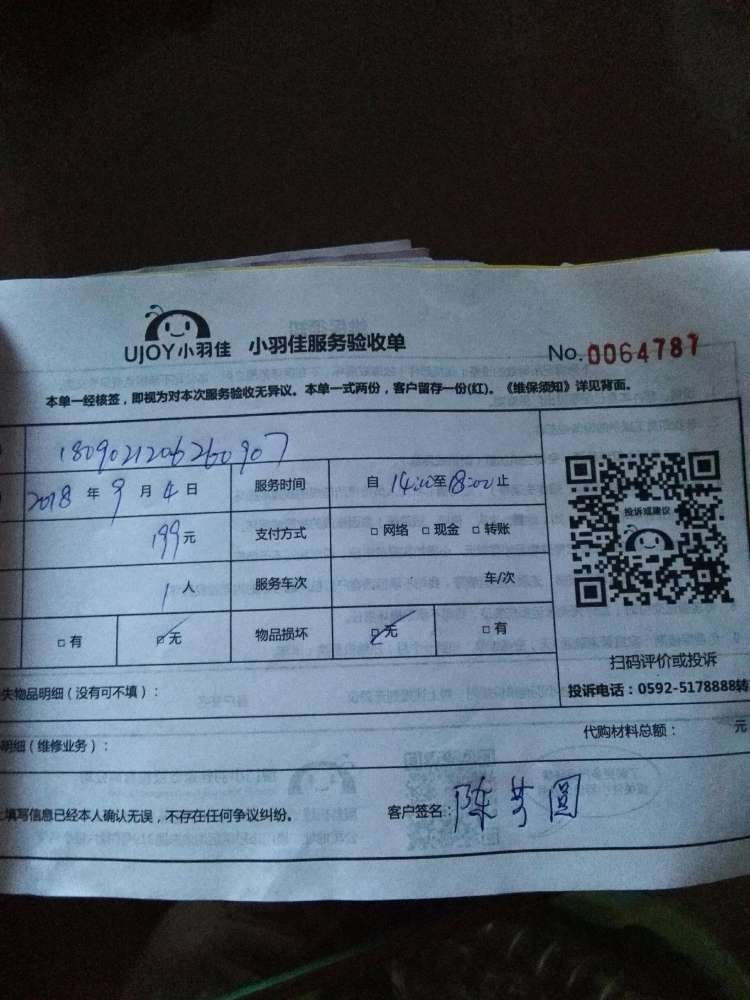 UJOY小羽佳 小羽佳服务验收单 No.0064787
本单一经核签，即视为对本次服务验收无异议。本单一式两份，客户留存一份(红)。《维保须知》详见背面。
1809021206260907
2018 年 9 月 4 日 服务时间 自 14:00至18:00止
199元 支付方式 □ 网络 □ 现金 □ 转账
1 人 服务车次 车/次
□ 有 □ 无 物品损坏 □ 无 □ 有
投诉或建议
扫码评价或投诉
失物品明细（没有可不填）：
投诉电话：0592-5178888转
明细（维修业务）： 代购材料总额： 元
填写信息已经本人确认无误，不存在任何争议纠纷。 客户签名：陈芳圆